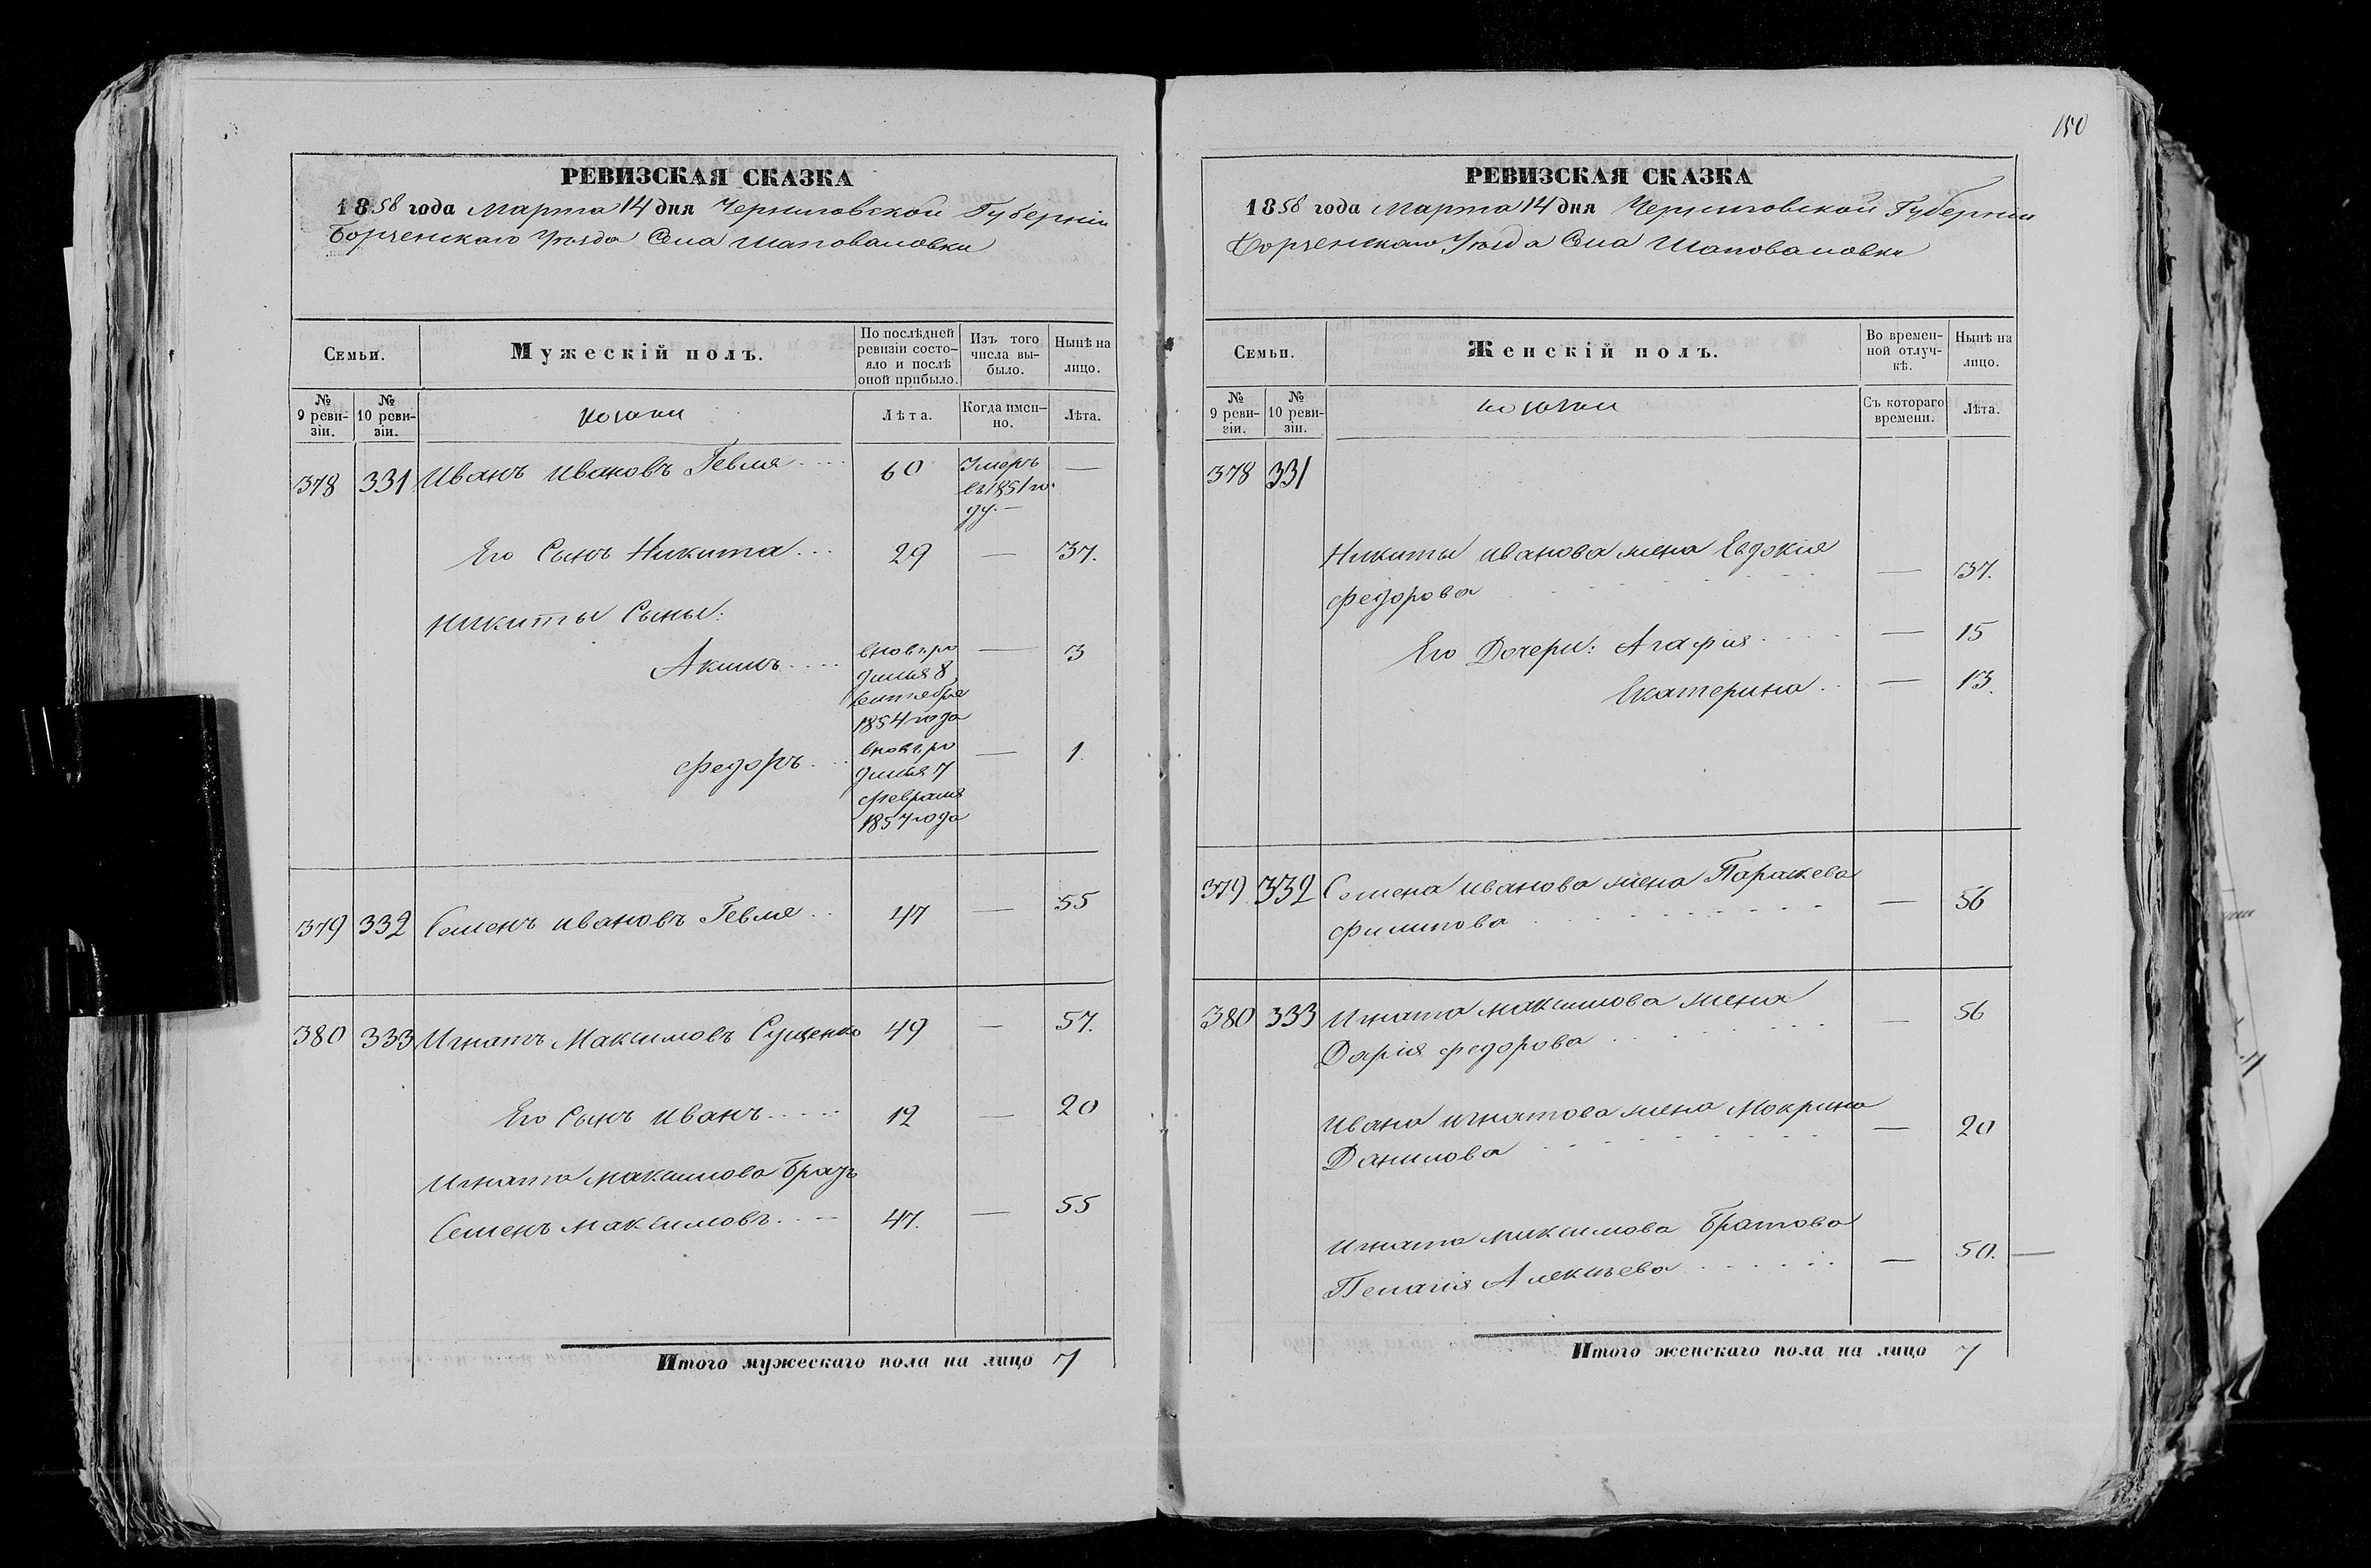 РЕВИЗСКАЯ СКАЗКА
1858 года Марта 14 дня Черниговской Губерніи
Борзенскаго Уѣзда Села Шаповаловки
Семьи.
Мужескій полъ.
По послѣдней
ревизіи состо-
яло и послѣ
оной прибыло.
Изъ того
числа вы-
было.
Нынѣ на
лицо.
№
9 реви-
зіи.
№
10 реви-
зіи.
козаки
Лѣта.
Когда имен-
но.
Лѣта.
378 331 Иванъ Ивановъ Гевля 60 Умеръ —
въ 1851 го-
ду. —
Его Сынъ Никита 29 — 37.
Никиты Сыны:
Акимъ вновь ро — 3
дился 8
Сентября
1854 года
Федоръ вновь ро — 1.
дился 7
Февраля
1857 года
379 332 Семенъ Ивановъ Гевля 47 — 55
380 333 Игнатъ Максимовъ Сущенко 49 — 57.
Его Сынъ Иванъ 12 — 20
Игната Максимова Братъ
Семенъ Максимовъ 47. — 55
Итого мужескаго пола на лицо 7
150
РЕВИЗСКАЯ СКАЗКА
1858 года Марта 14 дня Черниговской Губерніи
Борзенскаго Уѣзда Села Шаповаловки
Семьи.
Женскій полъ.
Во времен-
ной отлуч-
кѣ.
Нынѣ на
лицо.
№
9 реви-
зіи.
№
10 реви-
зіи.
козачки
Съ котораго
времени.
Лѣта.
378 331
Никиты Иванова жена Евдокія
Федорова — 37.
Его Дочери: Агафія — 15
Екатерина — 13.
379 332 Семена Иванова жена Параскева
Филипова — 56
380 333 Игната Максимова жена
Дарія Федорова — 56
Ивана Игнатова жена Мокрина
Данилова — 20
Игната Максимова Братова
Пелагія Алексѣева — 50. —
Итого женскаго пола на лицо 7